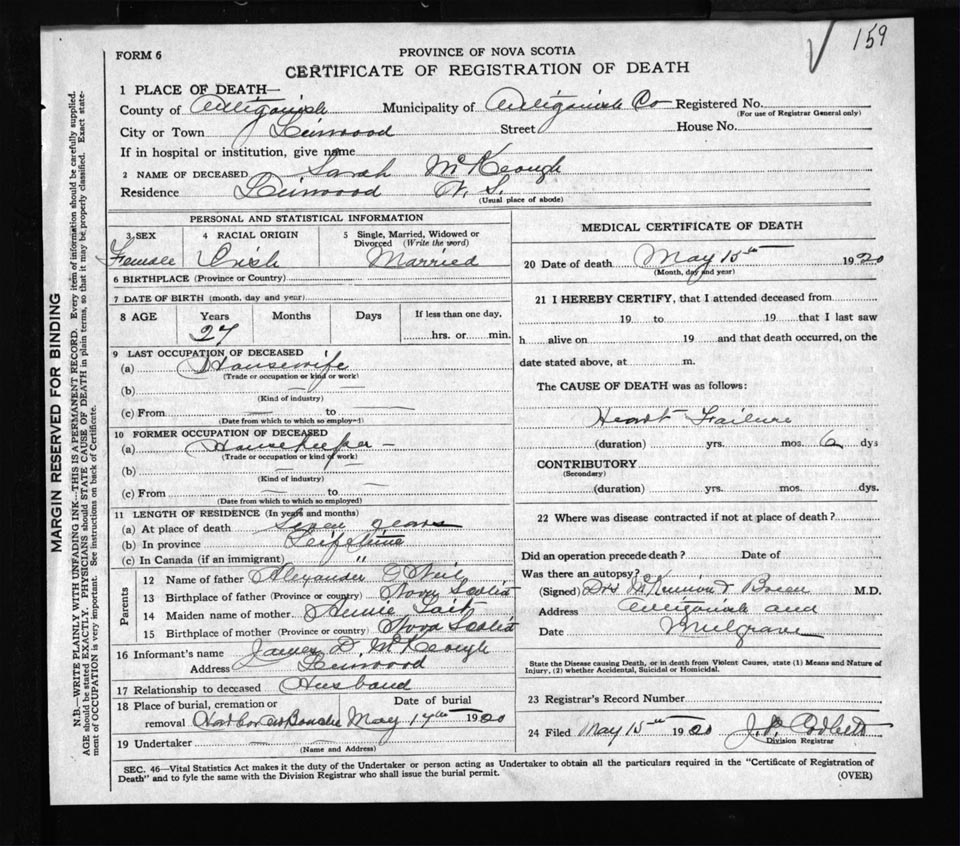 159
FORM 6
PROVINCE OF NOVA SCOTIA
CERTIFICATE OF REGISTRATION OF DEATH
1 PLACE OF DEATH—
County of Antigonish Municipality of Antigonish Co Registered No.
(For use of Registrar General only)
City or Town Linwood Street House No.
If in hospital or institution, give name
2 NAME OF DECEASED Sarah McKeough
Residence Linwood N. S.
(Usual place of abode)
PERSONAL AND STATISTICAL INFORMATION
3 SEX 4 RACIAL ORIGIN 5 Single, Married, Widowed or Divorced (Write the word)
Female Irish Married
6 BIRTHPLACE (Province or Country)
7 DATE OF BIRTH (month, day and year)
8 AGE Years Months Days If less than one day,
27 hrs. or min.
9 LAST OCCUPATION OF DECEASED
(a) Housewife
(Trade or occupation or kind or work)
(b) —
(Kind of industry)
(c) From — to —
(Date from which to which so employed)
10 FORMER OCCUPATION OF DECEASED
(a) Housekeeper —
(Trade or occupation or kind of work)
(b) —
(Kind of industry)
(c) From — to —
(Date from which to which so employed)
11 LENGTH OF RESIDENCE (In years and months)
(a) At place of death Seven years
(b) In province Lifetime
(c) In Canada (if an immigrant) "
Parents
12 Name of father Alexander O'Neil
13 Birthplace of father (Province or country) Nova Scotia
14 Maiden name of mother Annie Tait
15 Birthplace of mother (Province or country) Nova Scotia
16 Informant's name James D. McKeough
Address Linwood
17 Relationship to deceased Husband
18 Place of burial, cremation or Date of burial
removal Harbor au Bouche May 17th 1920
19 Undertaker —
(Name and Address)
MEDICAL CERTIFICATE OF DEATH
20 Date of death May 15th 1920
(Month, day and year)
21 I HEREBY CERTIFY, that I attended deceased from
19 to 19 that I last saw
h alive on 19 and that death occurred, on the
date stated above, at m.
The CAUSE OF DEATH was as follows:
Heart Failure
(duration) yrs. mos. 6 dys
CONTRIBUTORY
(Secondary)
(duration) yrs. mos. dys.
22 Where was disease contracted if not at place of death?
Did an operation precede death? Date of
Was there an autopsy?
(Signed) Drs McKinnon & M.D.
Address Antigonish and
Date Mulgrave
State the Disease causing Death, or in death from Violent Causes, state (1) Means and Nature of
Injury. (2) whether Accidental, Suicidal or Homicidal.
23 Registrar's Record Number
24 Filed May 15th 1920 J. Corbett
Division Registrar
SEC. 46—Vital Statistics Act makes it the duty of the Undertaker or person acting as Undertaker to obtain all the particulars required in the "Certificate of Registration of
Death" and to fyle the same with the Division Registrar who shall issue the burial permit.
(OVER)
MARGIN RESERVED FOR BINDING
N.B.—WRITE PLAINLY WITH UNFADING INK—THIS IS A PERMANENT RECORD. Every item of information should be carefully supplied.
AGE should be stated EXACTLY. PHYSICIANS should STATE CAUSE OF DEATH in plain terms, so that it may be properly classified. Exact state-
ment of OCCUPATION is very important. See instructions on back of Certificate.